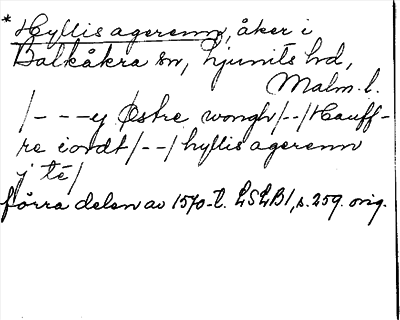 * Hyllis agerenn, åker i
Balkåkra sn, Ljunits hd,
Malm. l.
/- - - ej Østre wongh /--/ Hauff-
re iordt /--/ hyllis agerenn
j té/
förra delen av 1570-t. LSLB1, s. 259. orig.